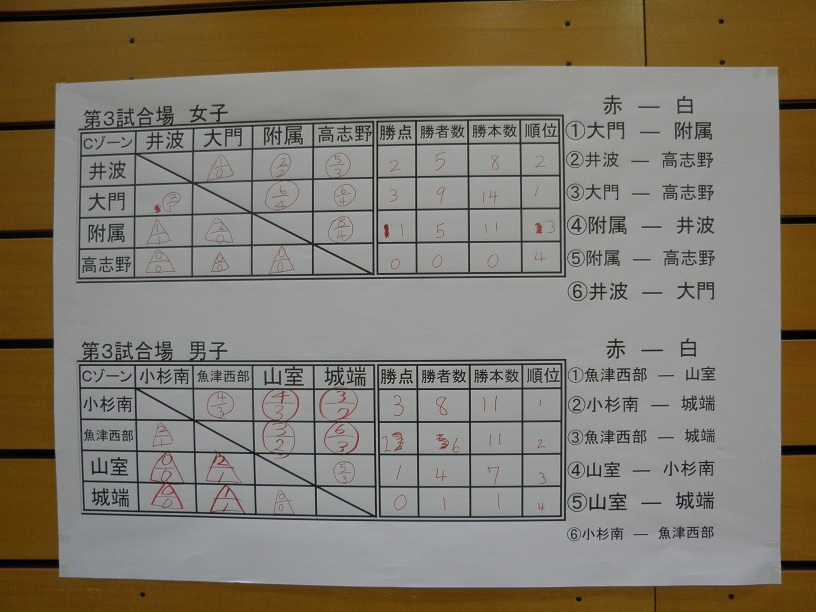 第3試合場 女子
Cゾーン 井波 大門 附属 高志野 勝点 勝者数 勝本数 順位
井波 1 0 2 2 5 3 2 5 8 2
大門 6 4 6 4 3 9 14 1
附属 1 1 2 0 8 4 1 5 11 3
高志野 0 0 0 0 0 0 0 0 0 4
赤 — 白
①大門 — 附属
②井波 — 高志野
③大門 — 高志野
④附属 — 井波
⑤附属 — 高志野
⑥井波 — 大門
第3試合場 男子
Cゾーン 小杉南 魚津西部 山室 城端 勝点 勝者数 勝本数 順位
小杉南 4 3 4 3 3 2 3 8 11 1
魚津西部 3 1 3 2 3 2 6 11 2
山室 0 0 2 1 5 3 1 4 7 3
城端 0 0 1 1 0 0 0 1 1 4
赤 — 白
①魚津西部 — 山室
②小杉南 — 城端
③魚津西部 — 城端
④山室 — 小杉南
⑤山室 — 城端
⑥小杉南 — 魚津西部